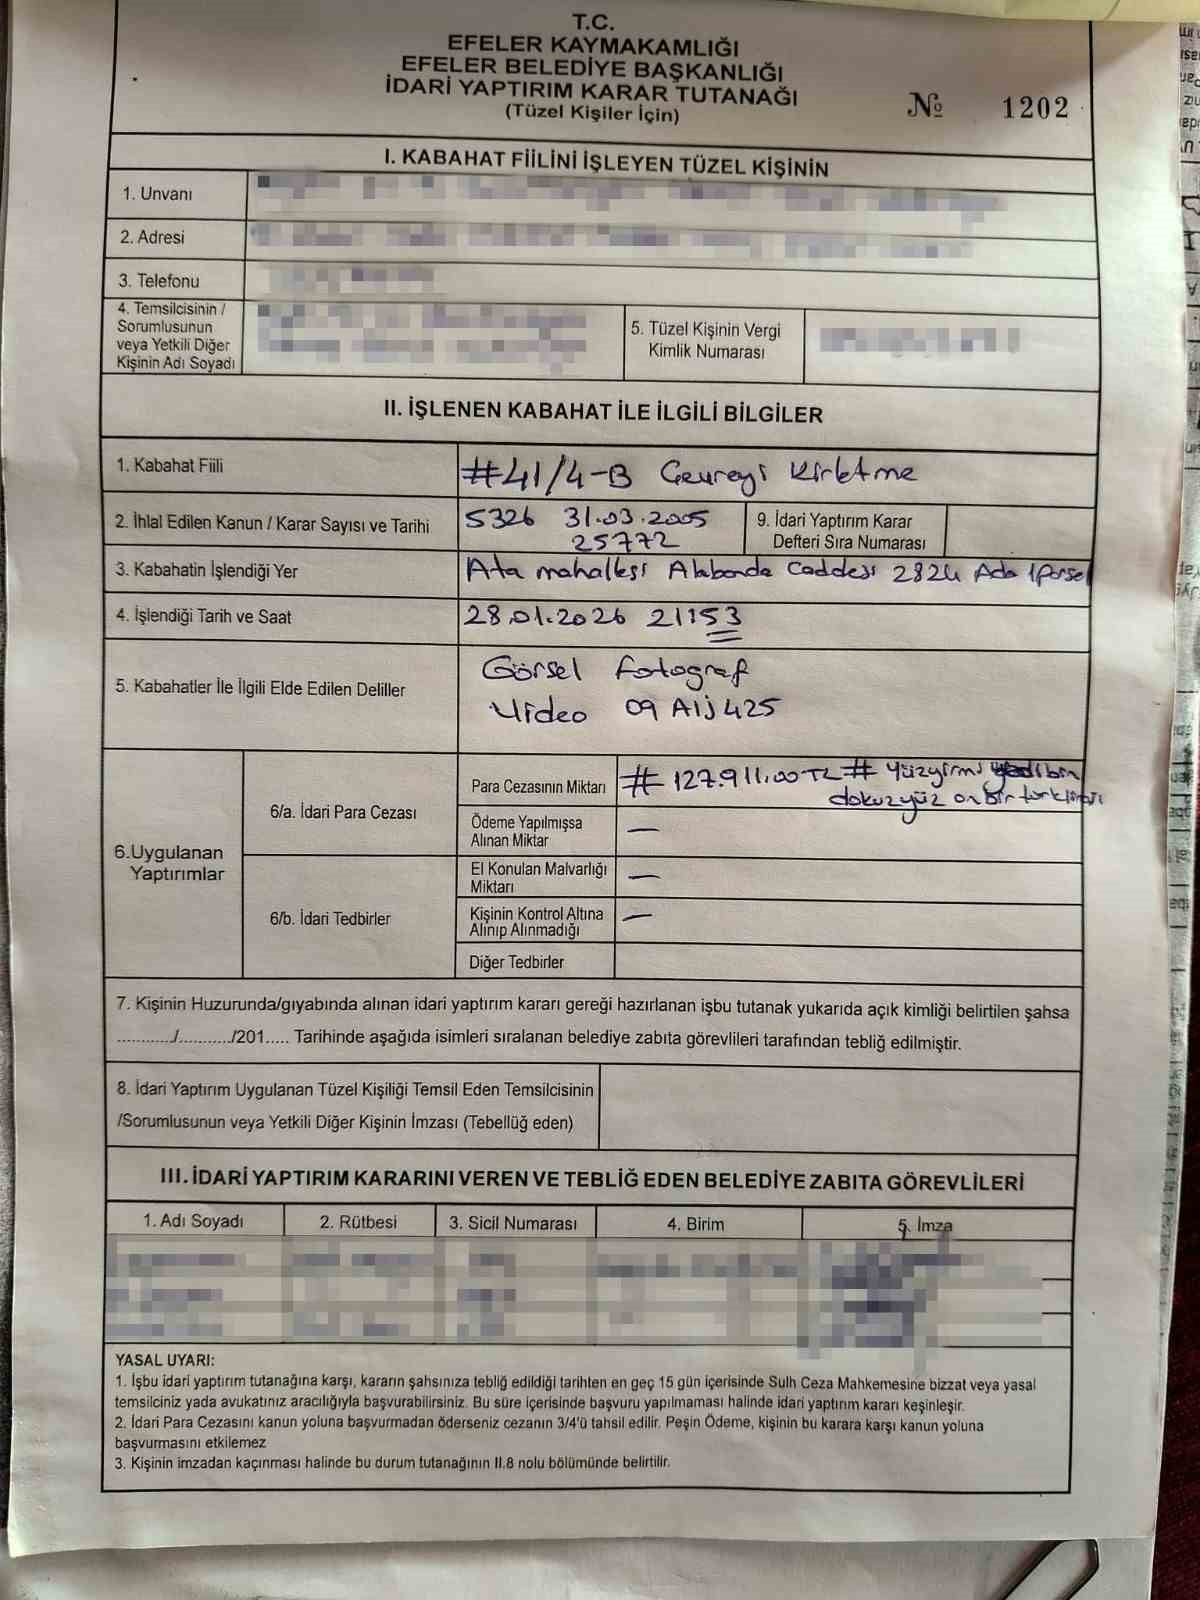 T.C.
EFELER KAYMAKAMLIĞI
EFELER BELEDİYE BAŞKANLIĞI
İDARİ YAPTIRIM KARAR TUTANAĞI
(Tüzel Kişiler İçin)
№ 1202
I. KABAHAT FİİLİNİ İŞLEYEN TÜZEL KİŞİNİN
1. Unvanı
2. Adresi
3. Telefonu
4. Temsilcisinin /
Sorumlusunun
veya Yetkili Diğer
Kişinin Adı Soyadı
5. Tüzel Kişinin Vergi
Kimlik Numarası
II. İŞLENEN KABAHAT İLE İLGİLİ BİLGİLER
1. Kabahat Fiili
#41/4-B Çevreyi Kirletme
2. İhlal Edilen Kanun / Karar Sayısı ve Tarihi
5326 31.03.2005
25772
9. İdari Yaptırım Karar
Defteri Sıra Numarası
3. Kabahatin İşlendiği Yer
Ata mahallesi Caddesi 2824 Ada 1 Parsel
4. İşlendiği Tarih ve Saat
28.01.2026 21:53
5. Kabahatler İle İlgili Elde Edilen Deliller
Görsel Fotoğraf
Video 09 AIJ 425
6.Uygulanan
Yaptırımlar
6/a. İdari Para Cezası
Para Cezasının Miktarı
# 127.911.00 TL # Yüzyirmi yedibin
dokuzyüz onbir türklirası
Ödeme Yapılmışsa
Alınan Miktar
—
6/b. İdari Tedbirler
El Konulan Malvarlığı
Miktarı
—
Kişinin Kontrol Altına
Alınıp Alınmadığı
—
Diğer Tedbirler
7. Kişinin Huzurunda/gıyabında alınan idari yaptırım kararı gereği hazırlanan işbu tutanak yukarıda açık kimliği belirtilen şahsa
.........../.........../201..... Tarihinde aşağıda isimleri sıralanan belediye zabıta görevlileri tarafından tebliğ edilmiştir.
8. İdari Yaptırım Uygulanan Tüzel Kişiliği Temsil Eden Temsilcisinin
/Sorumlusunun veya Yetkili Diğer Kişinin İmzası (Tebellüğ eden)
III. İDARİ YAPTIRIM KARARINI VEREN VE TEBLİĞ EDEN BELEDİYE ZABITA GÖREVLİLERİ
1. Adı Soyadı 2. Rütbesi 3. Sicil Numarası 4. Birim 5. İmza
YASAL UYARI:
1. İşbu idari yaptırım tutanağına karşı, kararın şahsınıza tebliğ edildiği tarihten en geç 15 gün içerisinde Sulh Ceza Mahkemesine bizzat veya yasal
temsilciniz yada avukatınız aracılığıyla başvurabilirsiniz. Bu süre içerisinde başvuru yapılmaması halinde idari yaptırım kararı keşinleşir.
2. İdari Para Cezasını kanun yoluna başvurmadan öderseniz cezanın 3/4'ü tahsil edilir. Peşin Ödeme, kişinin bu karara karşı kanun yoluna
başvurmasını etkilemez
3. Kişinin imzadan kaçınması halinde bu durum tutanağının II.8 nolu bölümünde belirtilir.